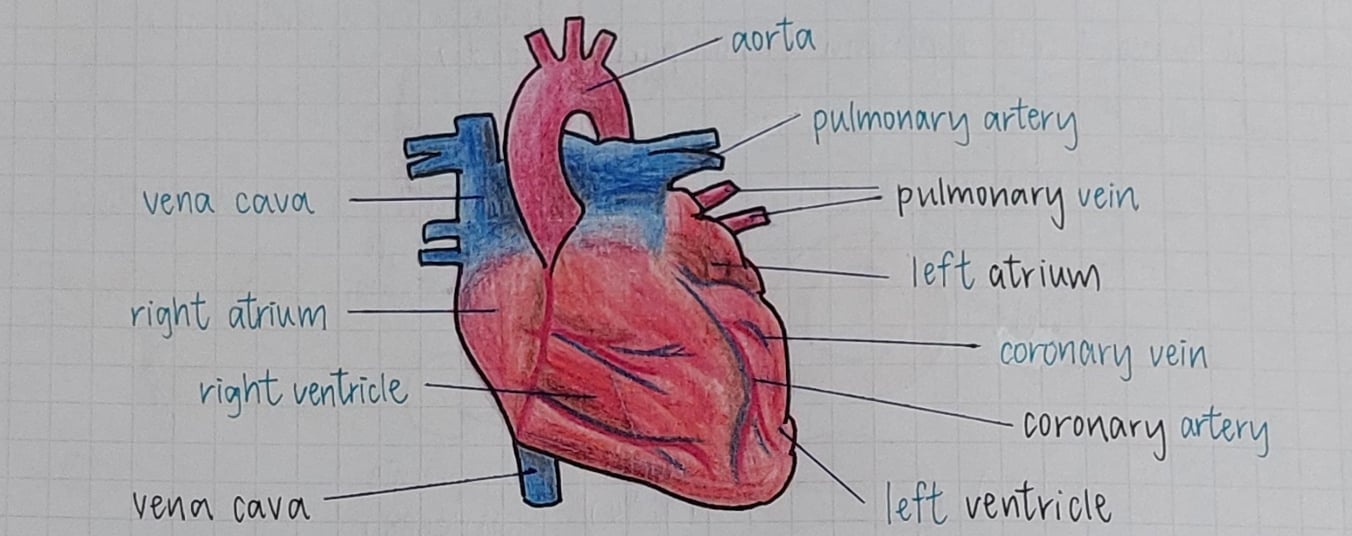 aorta
pulmonary artery
pulmonary vein
vena cava
left atrium
right atrium
coronary vein
right ventricle
coronary artery
vena cava
left ventricle